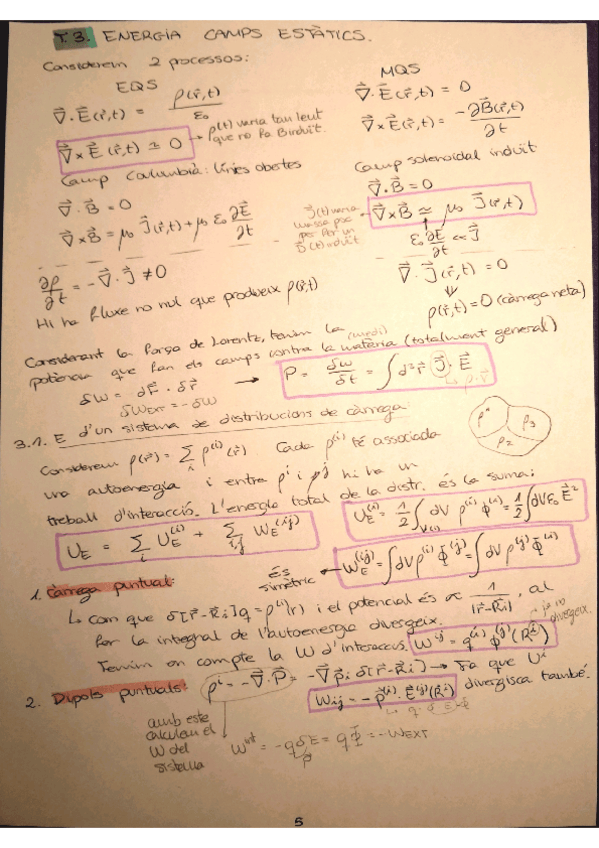 T.3. ENERGÍA CAMPS ESTÀTICS.
Considerem 2 processos:
EQS
∇⃗·E⃗(r⃗,t) = ρ(r⃗,t)/ε₀
∇⃗×E⃗(r⃗,t) ≃ 0
→ ρ(t) varia tan lent que no fa B induït.
Camp Coulombià: línies obertes
∇⃗·B⃗ = 0
∇⃗×B⃗ = μ₀ J⃗(r⃗,t) + μ₀ ε₀ ∂E⃗/∂t
∂ρ/∂t = -∇⃗·J⃗ ≠ 0
Hi ha fluxe no nul que produeix ρ(r⃗,t)
MQS
∇⃗·E⃗(r⃗,t) = 0
∇⃗×E⃗(r⃗,t) = -∂B⃗(r⃗,t)/∂t
Camp solenoidal induït
∇⃗·B⃗ = 0
J⃗(t) varia
per fer un
D⃗(t) induït
∇⃗×B⃗ ≃ μ₀ J⃗(r⃗,t)
ε₀ ∂E⃗/∂t ∝ J⃗
∇⃗·J⃗(r⃗,t) = 0
⇓
ρ(r⃗,t) = 0 (càrrega neta)
Considerant la força de Lorentz, tenim la (medi)
potència que fan els camps contra la matèria (totalment general)
δW = dF⃗ · δr⃗ → P = δW/δt = ∫d³r⃗ J⃗·E⃗
δW_EXT = -δW
ρ·v⃗
3.1. E d'un sistema de distribucions de càrrega
Considerem ρ(r⃗) = Σᵢ ρ⁽ⁱ⁾(r⃗) Cada ρ⁽ⁱ⁾ té associada
una autoenergía i entre ρⁱ i ρʲ hi ha un
treball d'interacció. L'energía total de la distr. és la suma:
ρ¹ ρ₃
ρ₂
U_E = Σᵢ U_E⁽ⁱ⁾ + Σᵢ,ⱼ W_E⁽ⁱʲ⁾
U_E⁽ⁱ⁾ = 1/2 ∫_V(i) dV ρ⁽ⁱ⁾ Φ⁽ⁱ⁾ = 1/2 ∫dV ε₀ E⃗²
és simètric ← W_E⁽ⁱʲ⁾ = ∫dV ρ⁽ⁱ⁾ Φ⁽ʲ⁾ = ∫dV ρ⁽ʲ⁾ Φ⁽ⁱ⁾
1. Càrrega puntual:
↳ Com que δ[r⃗-R⃗ᵢ]q = ρ⁽ⁱ⁾(r) i el potencial és ∝ 1/|r⃗-R⃗ᵢ|, al
fer la integral de l'autoenergía divergeix.
Tenim en compte la W d'interacció. Wⁱʲ = q⁽ⁱ⁾ Φ⁽ʲ⁾(R⃗ᵢ)
→ ja no divergeix.
2. Dipols puntuals: ρⁱ = -∇⃗·P⃗ = -∇⃗p⃗ᵢ δ[r⃗-R⃗ᵢ] → Fa que Uⁱ
divergisca també.
Wᵢⱼ = -p⃗⁽ⁱ⁾·E⃗⁽ʲ⁾(R⃗ᵢ)
amb este
calculem el
W del
sistema
W^int = -qδE = qΦ = -W_EXT
p⃗
5